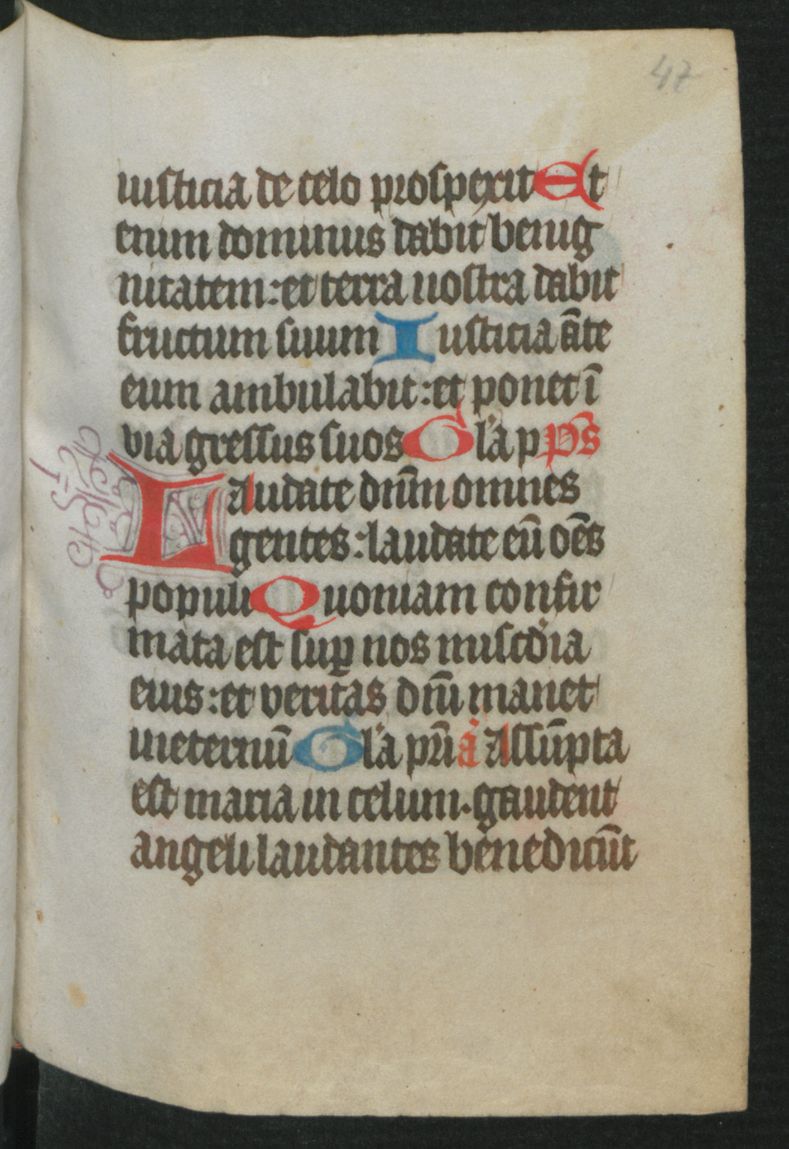 47
iusticia de celo prosperit Et
enim dominus dabit benig
nitatem: et terra nostra dabit
fructum suum Iusticia āte
eum ambulabit: et ponet ī
via gressus suos Gl'a p ps̄
Laudate dn̄m omnes
gentes: laudate eū oēs
populi Quoniam confir
mata est suꝑ nos mīscdīa
eius: et veritas dn̄i manet
ineternū Gl'a pr̄i a Assūpta
est maria in celum. gaudent
angeli laudantes benedicūt